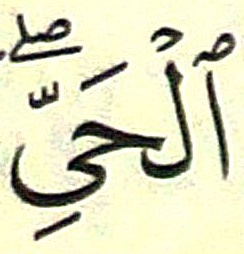 ٱلْحَيِّۖ